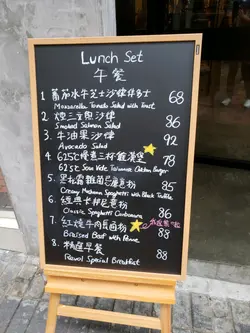 Lunch Set
午餐
1. 蕃茄水牛芝士沙律伴多士 68
Mozzarella Tomato Salad with Toast
2. 煙三文魚沙律 86
Smoked Salmon Salad
3. 牛油果沙律 92
Avocado Salad
4. 62.5℃慢煮三杯雞漢堡 78
62.5℃ Sous Vide Taiwanese Chicken Burger
5. 黑松露雜菌忌廉意粉 85
Creamy Mushroom Spaghetti with Black Truffle
6. 經典卡邦尼意粉 86
Classic Spaghetti Carbonara
7. 紅燒牛肉長通粉 88
Braised Beef with Penne
8. 精選早餐 88
Special Breakfast